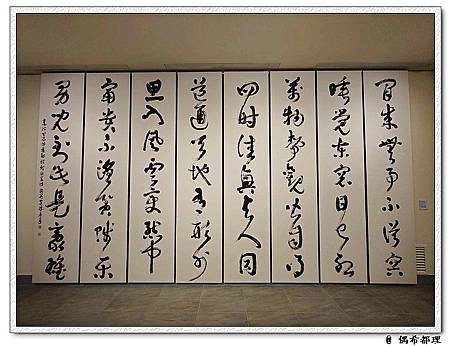 閒來無事不從容
睡覺東窗日已紅
萬物靜觀皆自得
四時佳興與人同
道通天地有形外
思入風雲變態中
富貴不淫貧賤樂
男兒到此是豪雄
@ 偶希都理